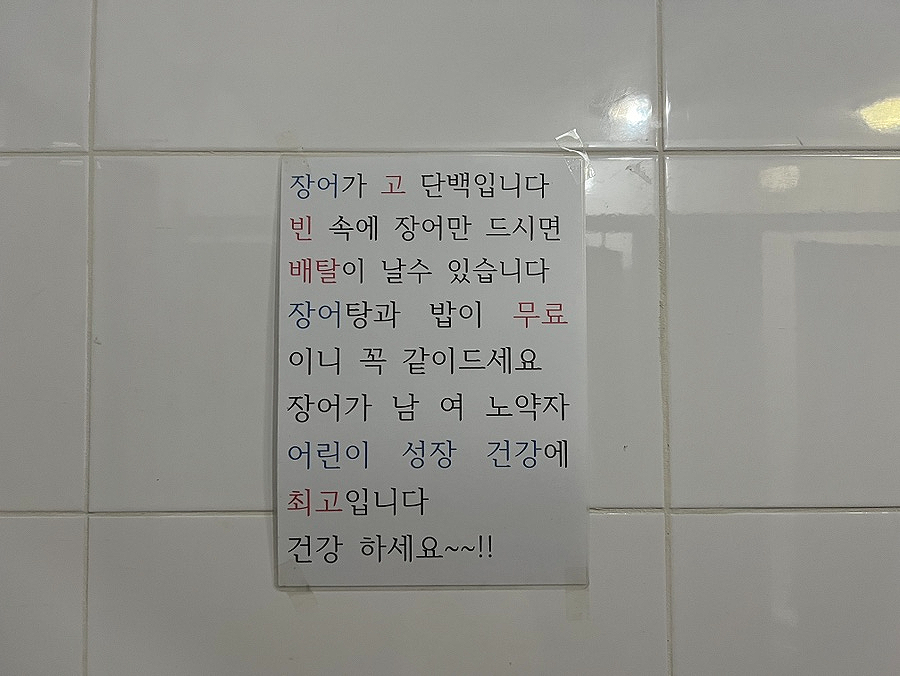 장어가 고 단백입니다
빈 속에 장어만 드시면
배탈이 날수 있습니다
장어탕과 밥이 무료
이니 꼭 같이드세요
장어가 남 여 노약자
어린이 성장 건강에
최고입니다
건강 하세요~~!!